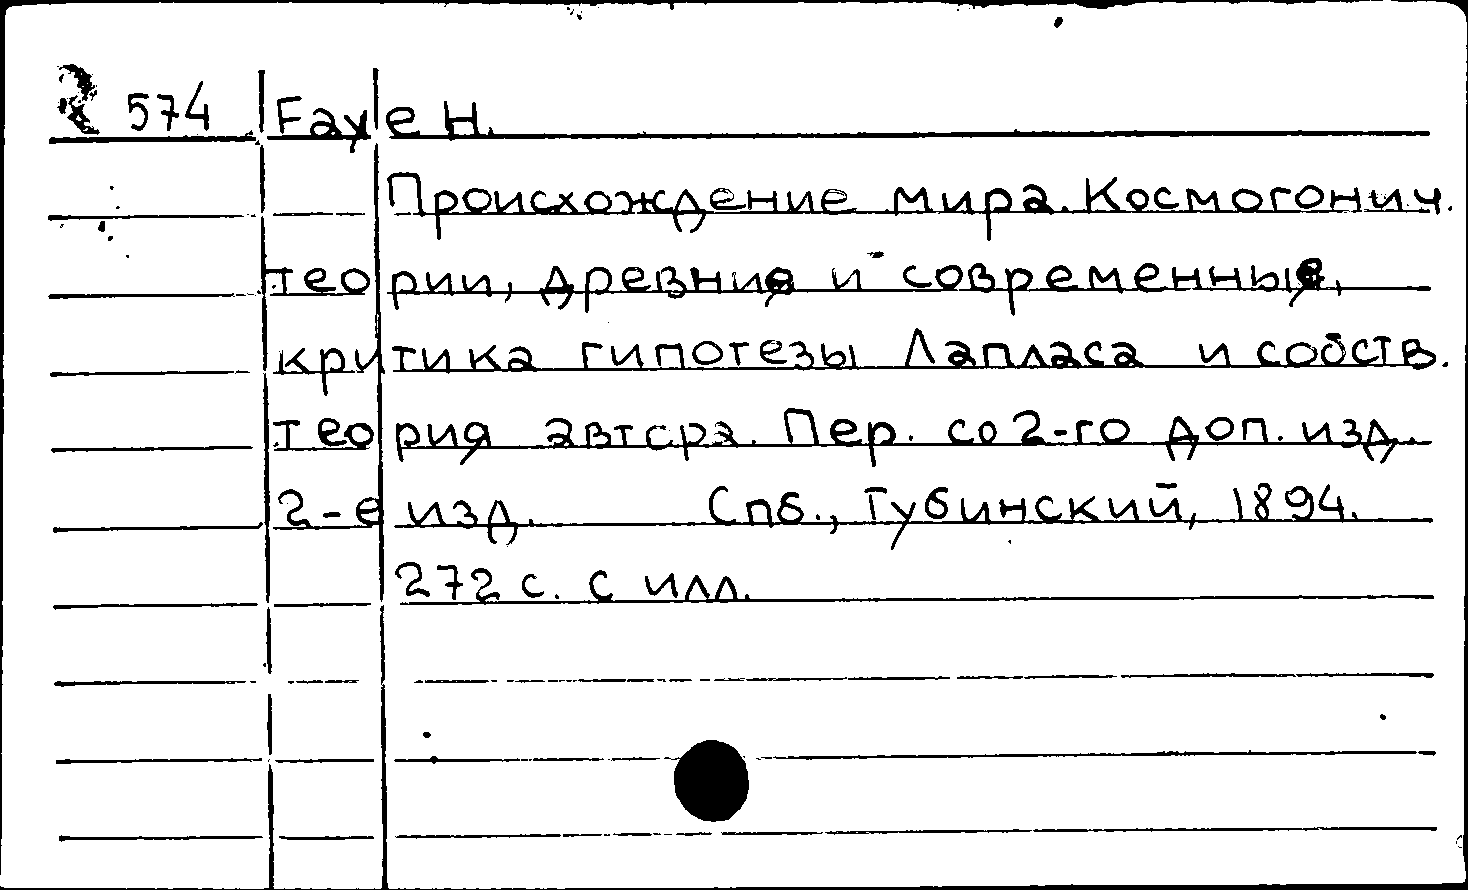 R 574 Faye H.
Происхождение мира. Космогонич.
теории, древния и современныя,
критика гипотезы Лапласа и собств.
теория автора. Пер. со 2-го доп. изд.
2-е изд. Спб., Губинский, 1894.
272 с. с илл.